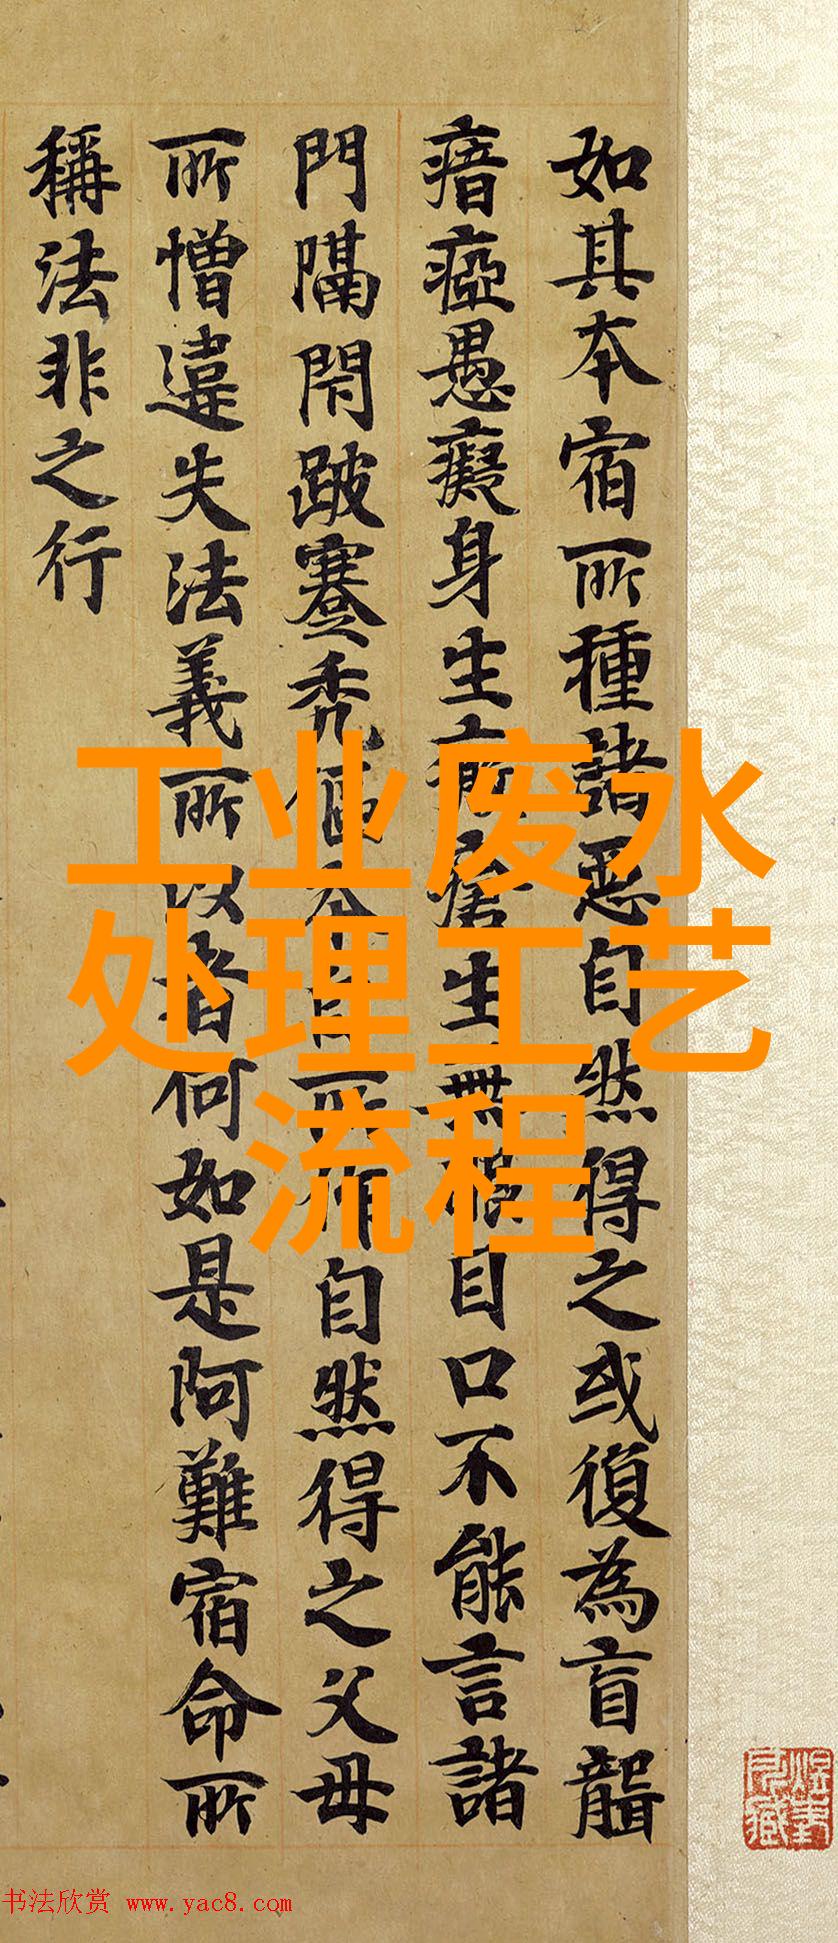 如其本宿所種諸惡自然得之或復為盲聾
瘖瘂愚癡身生生無眼目口不能言諸
門隔閇跛蹇禿傴本自所作自然得之父母
所憎違失法義所以者何如是阿難宿命所
稱法非之行
工业废水
处理工艺
流程
书法欣赏 www.yac8.com